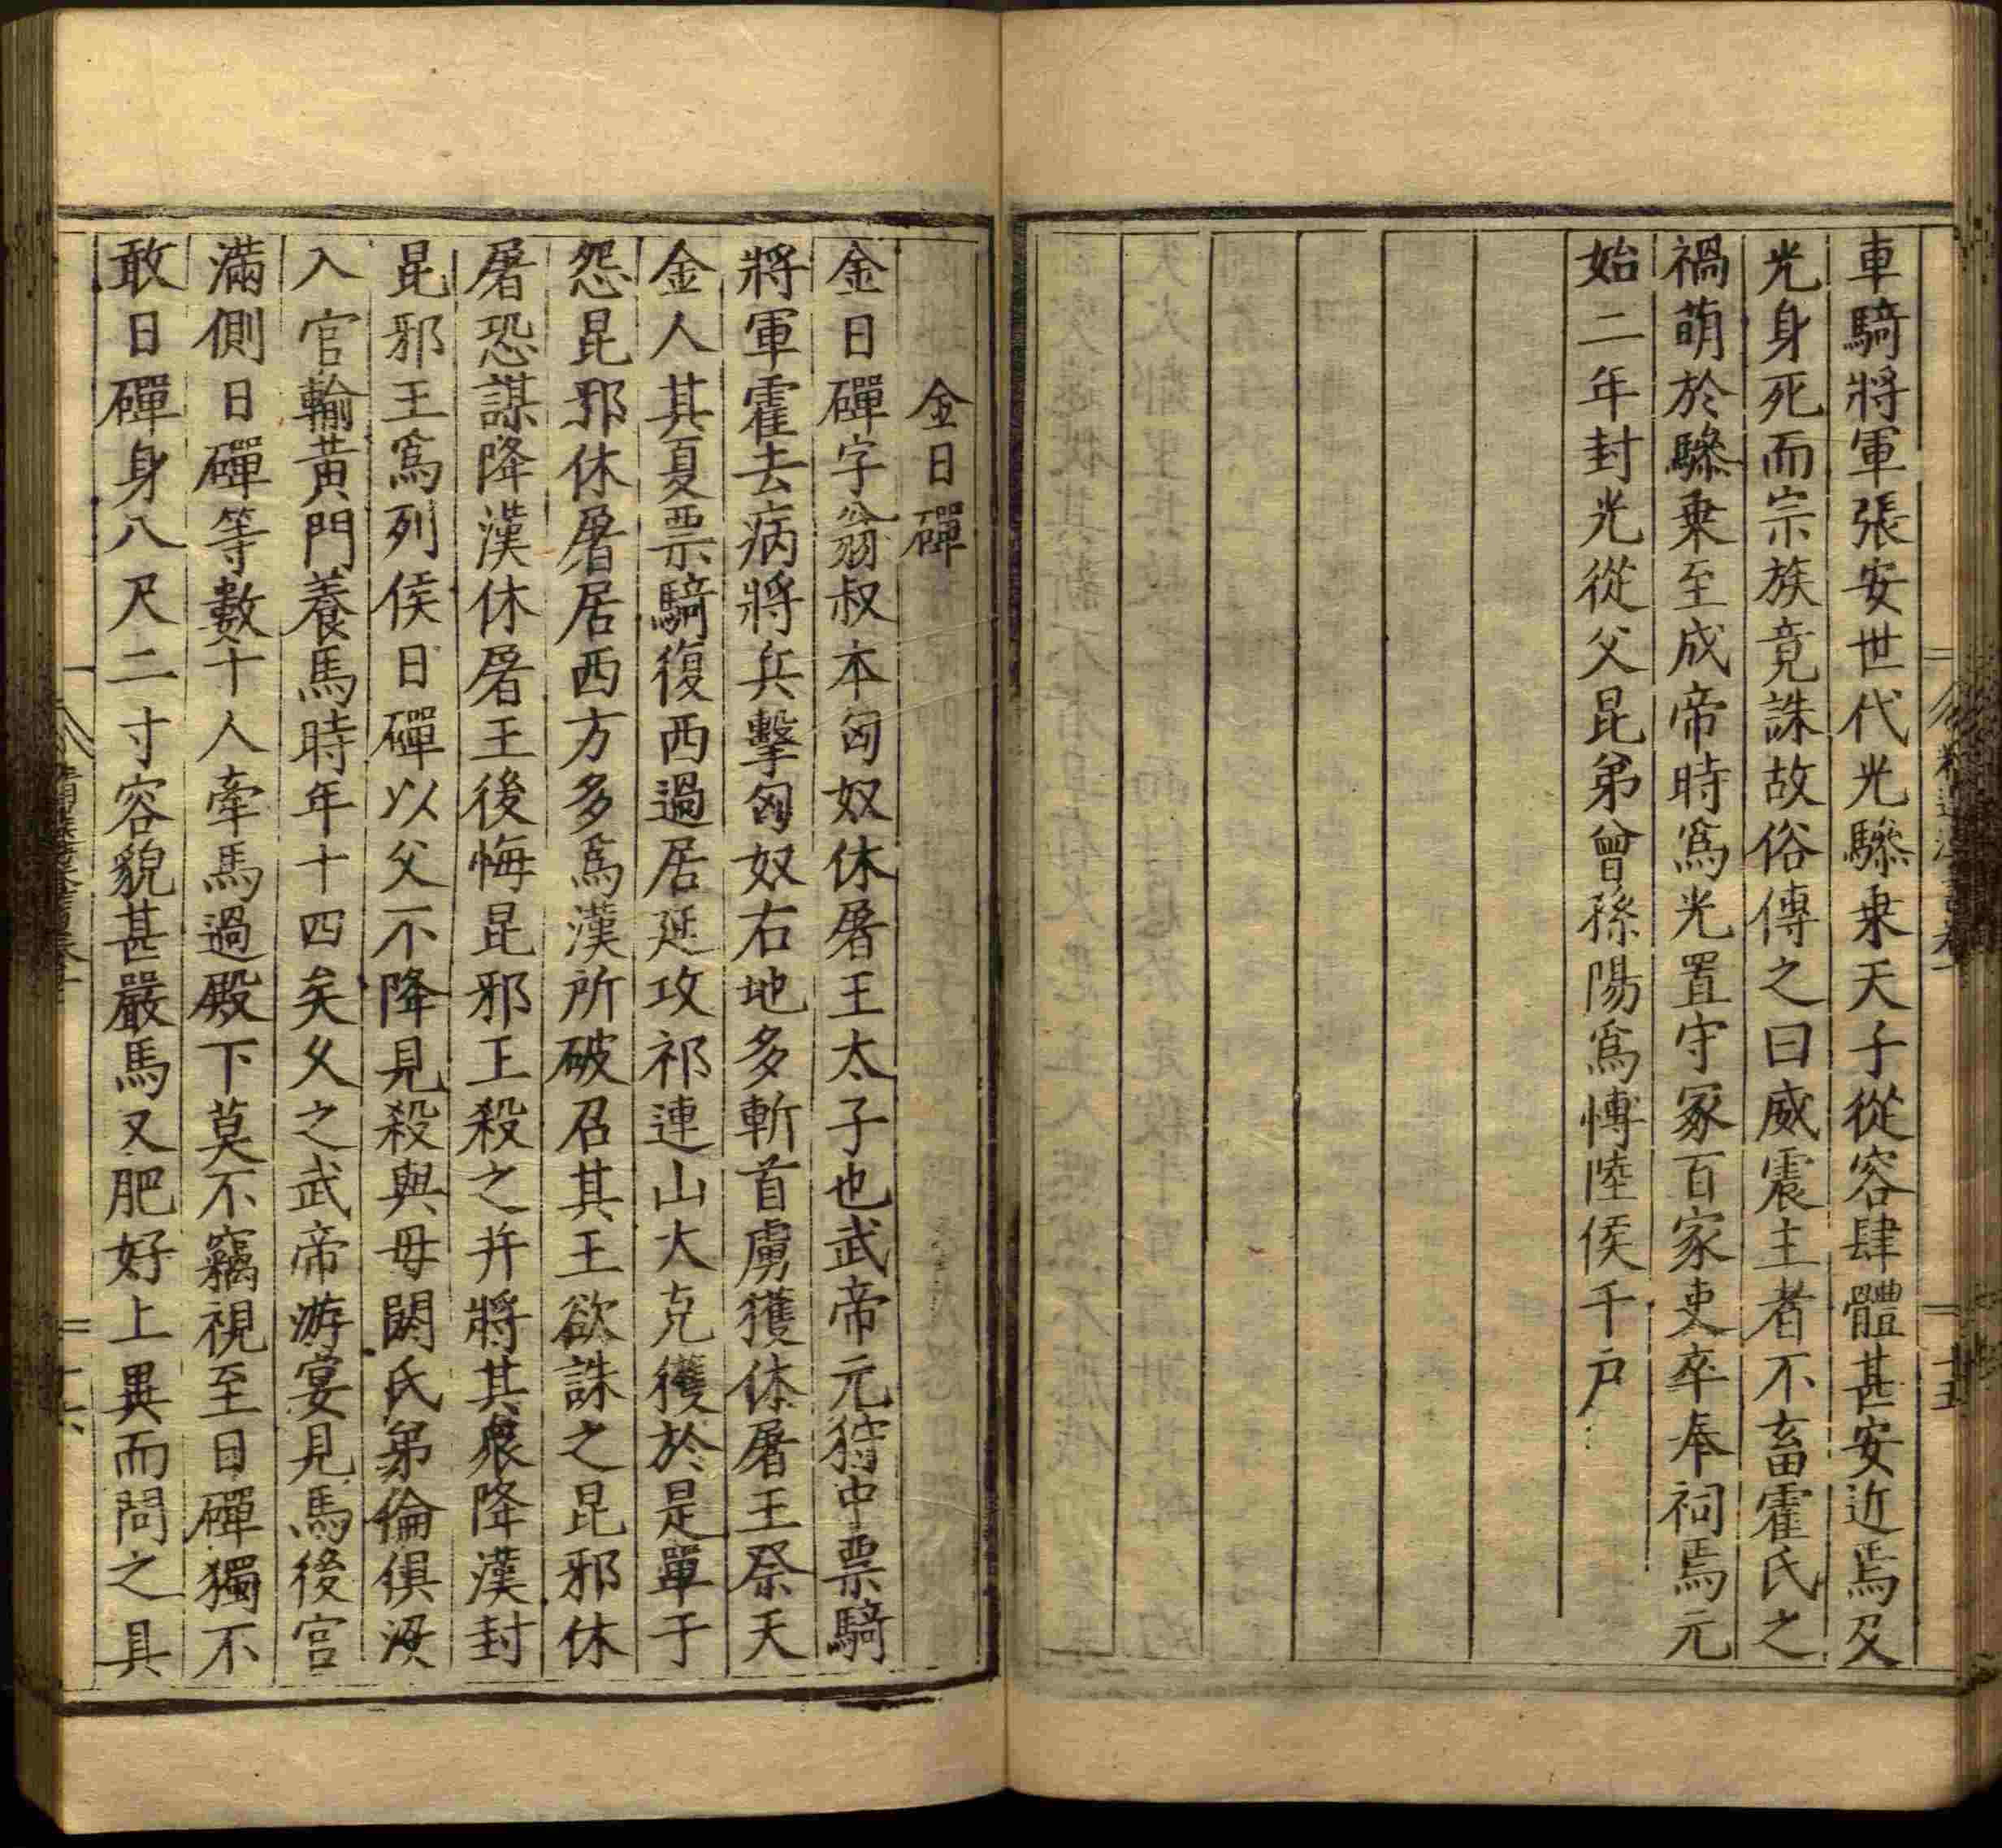 車騎將軍張安世代光驂乗天子從容肆體甚安近焉及
光身死而宗族竟誅故俗傳之曰威震主者不畜霍氏之
禍萌於驂乗至成帝時爲光置守冢百家吏卒奉祠焉元
始二年封光從父昆弟曾孫陽爲博陸侯千户
金日磾
金日磾字翁叔本匈奴休屠王太子也武帝元狩中票騎
將軍霍去病將兵擊匈奴右地多斬首虜獲休屠王祭天
金人其夏票騎復西過居延攻祁連山大克獲於是單于
怨昆邪休屠居西方多爲漢所破召其王欲誅之昆邪休
屠恐謀降漢休屠王後悔昆邪王殺之并將其衆降漢封
昆邪王爲列侯日磾以父不降見殺與母閼氏弟倫俱沒
入官輸黄門養馬時年十四矣乆之武帝游宴見馬後宫
滿側日磾等數十人牽馬過殿下莫不竊視至日磾獨不
敢日磾身八尺二寸容貌甚嚴馬又肥好上異而問之具